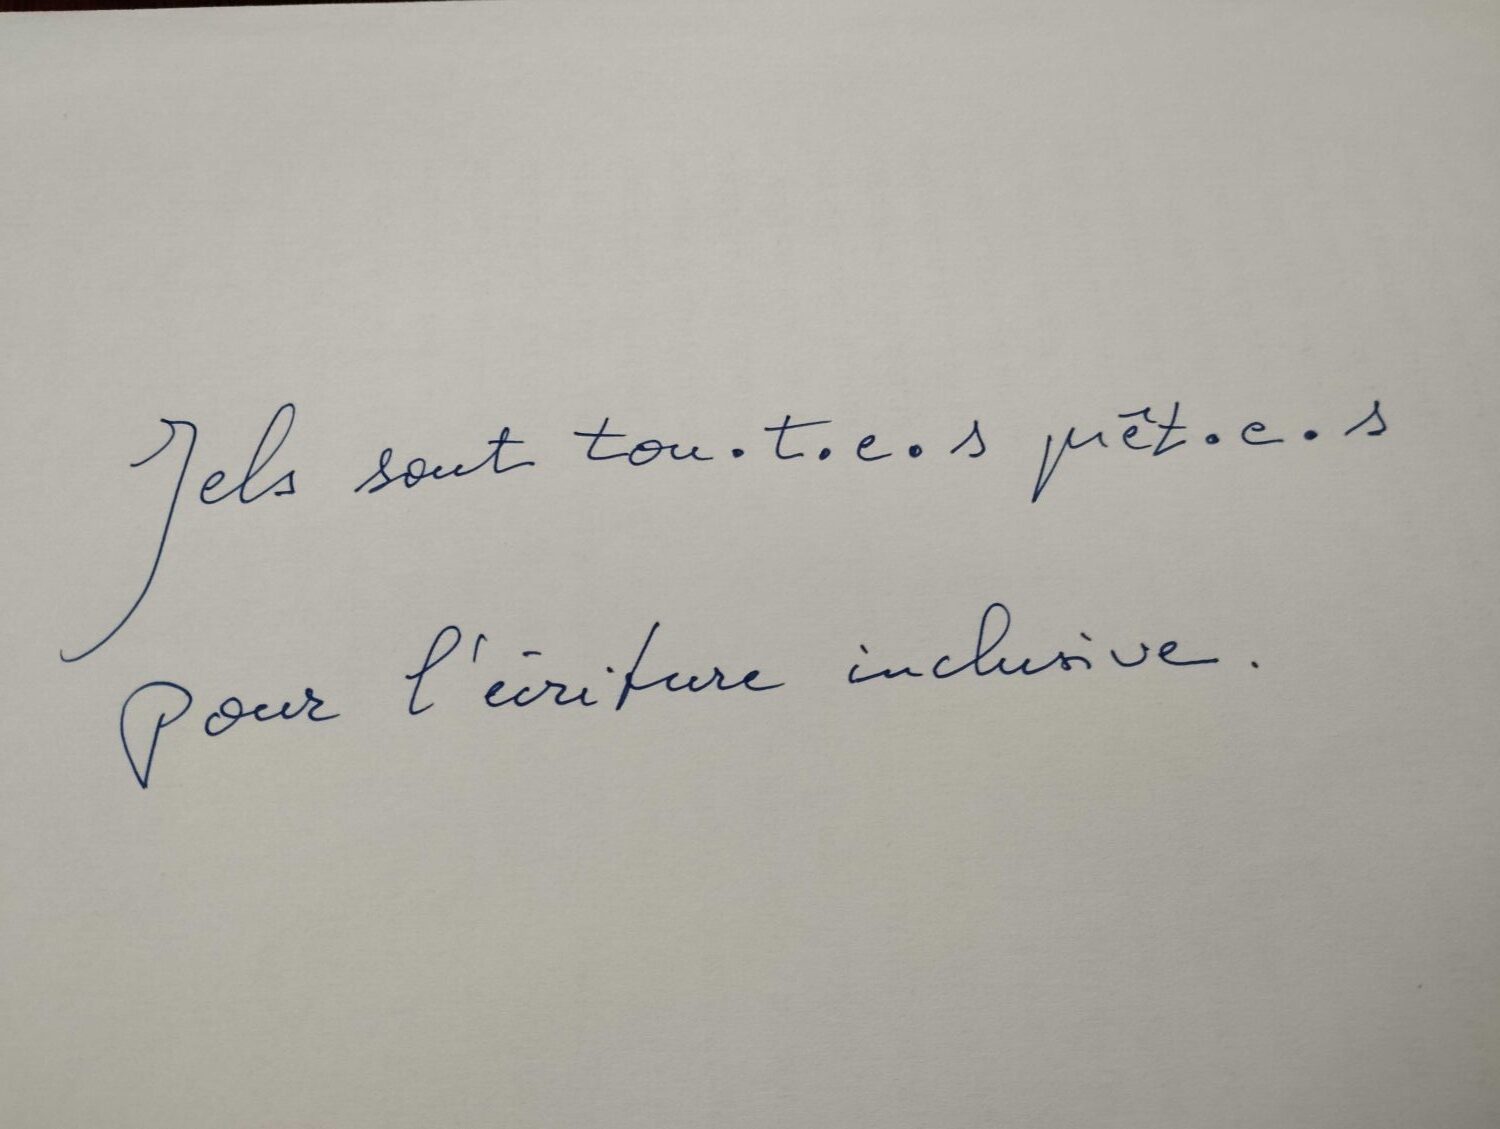 Iels sont tou.t.e.s prêt.e.s
pour l'écriture inclusive.